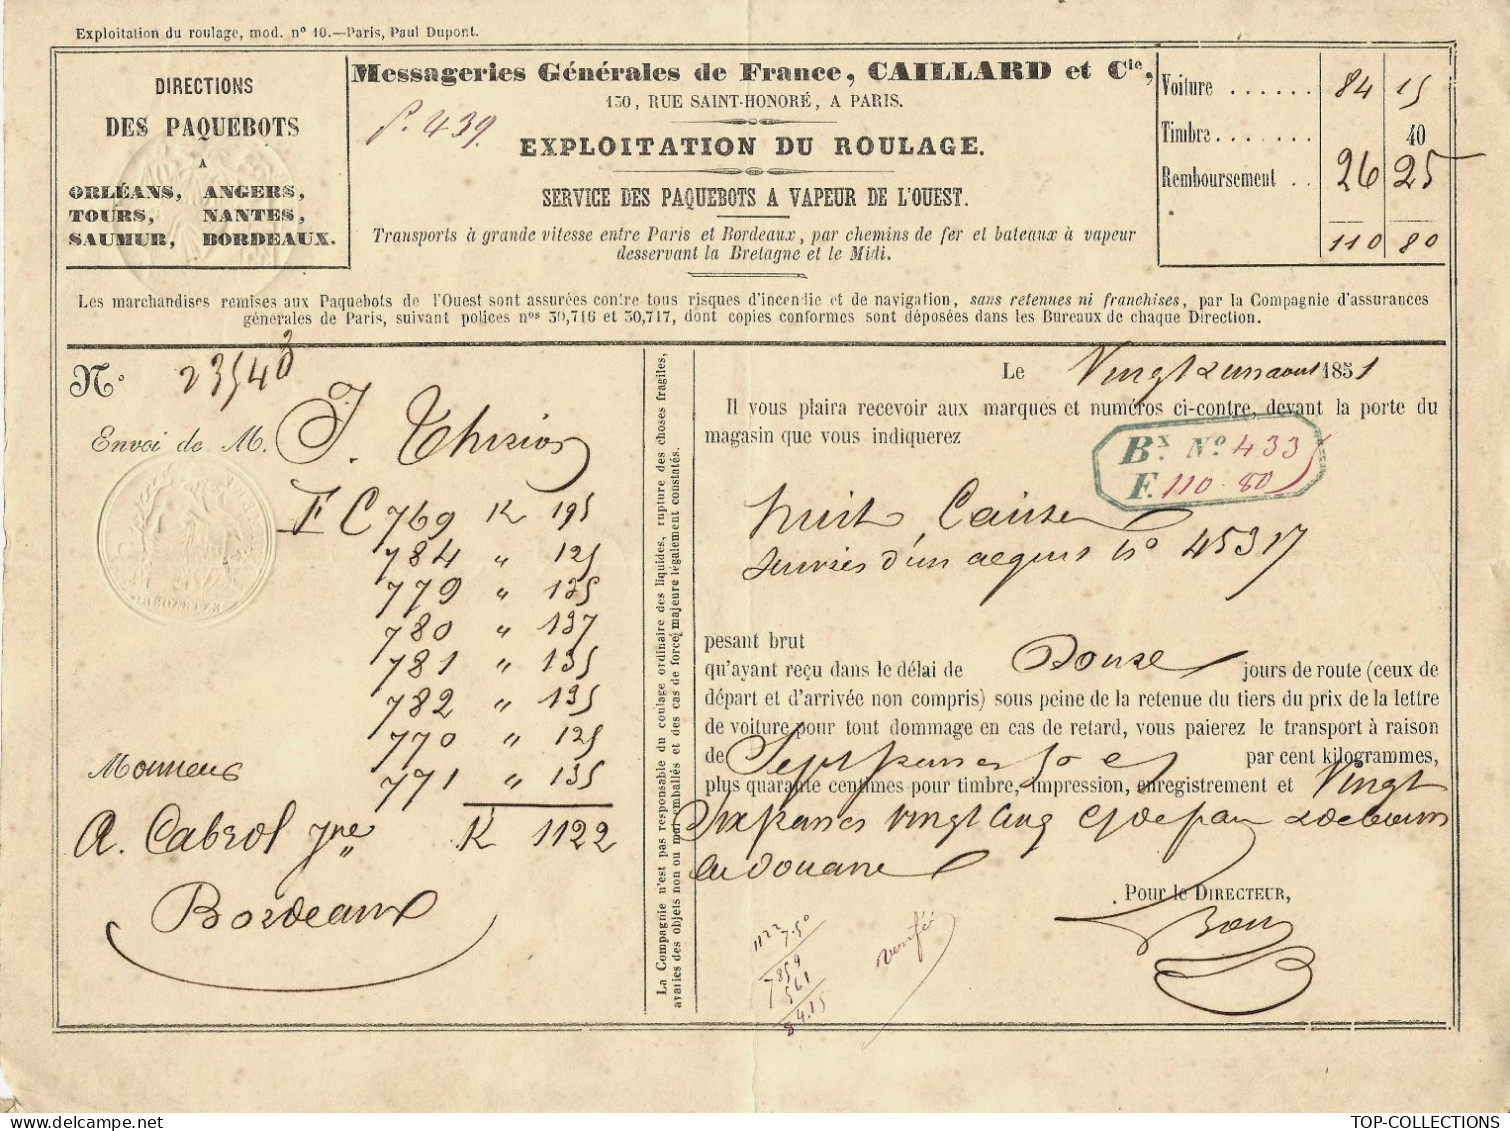 Exploitation du roulage, mod. n° 10.—Paris, Paul Dupont.
DIRECTIONS
DES PAQUEBOTS
A
ORLÉANS, ANGERS,
TOURS, NANTES,
SAUMUR, BORDEAUX.
Messageries Générales de France, CAILLARD et Cie,
130, RUE SAINT-HONORÉ, A PARIS.
P. 439.
EXPLOITATION DU ROULAGE.
SERVICE DES PAQUEBOTS A VAPEUR DE L'OUEST.
Transports à grande vitesse entre Paris et Bordeaux, par chemins de fer et bateaux à vapeur
desservant la Bretagne et le Midi.
Voiture ...... 84 15
Timbre ....... 40
Remboursement .. 26 25
110 80
Les marchandises remises aux Paquebots de l'Ouest sont assurées contre tous risques d'incendie et de navigation, sans retenues ni franchises, par la Compagnie d'assurances
générales de Paris, suivant polices nos 30,716 et 30,717, dont copies conformes sont déposées dans les Bureaux de chaque Direction.
N° 23543
Envoi de M. J. Thirion
FC 769 K 195
784 " 125
779 " 135
780 " 137
781 " 135
782 " 135
770 " 125
771 " 135
K 1122
Monsieur
A. Cabrol jne
Bordeaux
La Compagnie n'est pas responsable du coulage ordinaire des liquides, rupture des choses fragiles,
avaries des objets non ou mal emballés et des cas de force majeure légalement constatés.
Le Vingt un aout 1851
Il vous plaira recevoir aux marques et numéros ci-contre, devant la porte du
magasin que vous indiquerez
Bx N° 433
F. 110.80
huit Caisses
suivies d'un acquit No 45317
pesant brut
qu'ayant reçu dans le délai de Douze jours de route (ceux de
départ et d'arrivée non compris) sous peine de la retenue du tiers du prix de la lettre
de voiture pour tout dommage en cas de retard, vous paierez le transport à raison
de Sept francs 50 c par cent kilogrammes,
plus quarante centimes pour timbre, impression, enregistrement et Vingt
six francs vingt cinq
de douane
Pour le DIRECTEUR,
1122
7.50
7854
561
84.15
verifié
TOP-COLLECTIONS